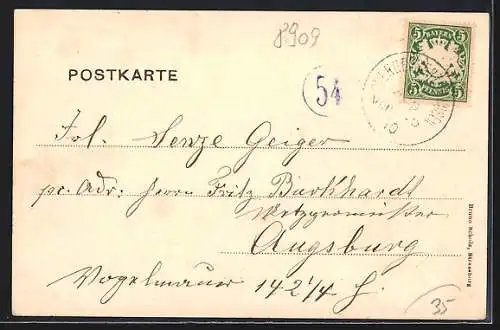 8909
BAYERN
5 5
PFENNIG
5 5
POSTKARTE
54
Frl. Senze Geiger
pr. Adr: Herrn Fritz Burkhardt
Metzgermeister
Augsburg
Vogelmauer 142 1/4 f.
Bruno Schulz, Strassburg
35